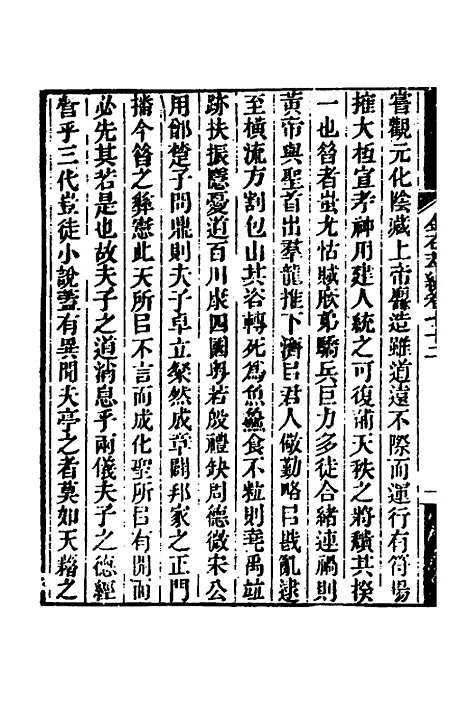 嘗觀元化陰藏上帝嚴造雖道遠不際而運行有符場
搉大抵宣考神用建人統之可復補天秩之將穨其揆
一也㫺者蚩尤怙賊厥弟驕兵巨力多徒合緒連禍則
黃帝與聖首出羣龍推下濟㠯君人儆勤略㠯戡亂逮
至橫流方割包山其咨轉死為魚鱻食不粒則堯禹竝
跡扶振隱憂道百川康四國粵若殷禮缺周德微宋公
用鄫楚子問鼎則夫子卓立粲然成章闢邦家之正門
播今㫺之彝憲此天所㠯不言而成化聖所㠯有開而
必先其若是也故夫子之道消息乎兩儀夫子之德經
營乎三代豈徒小說蓋有異聞夫亭之者莫如天藉之
金石萃編卷七十二
一